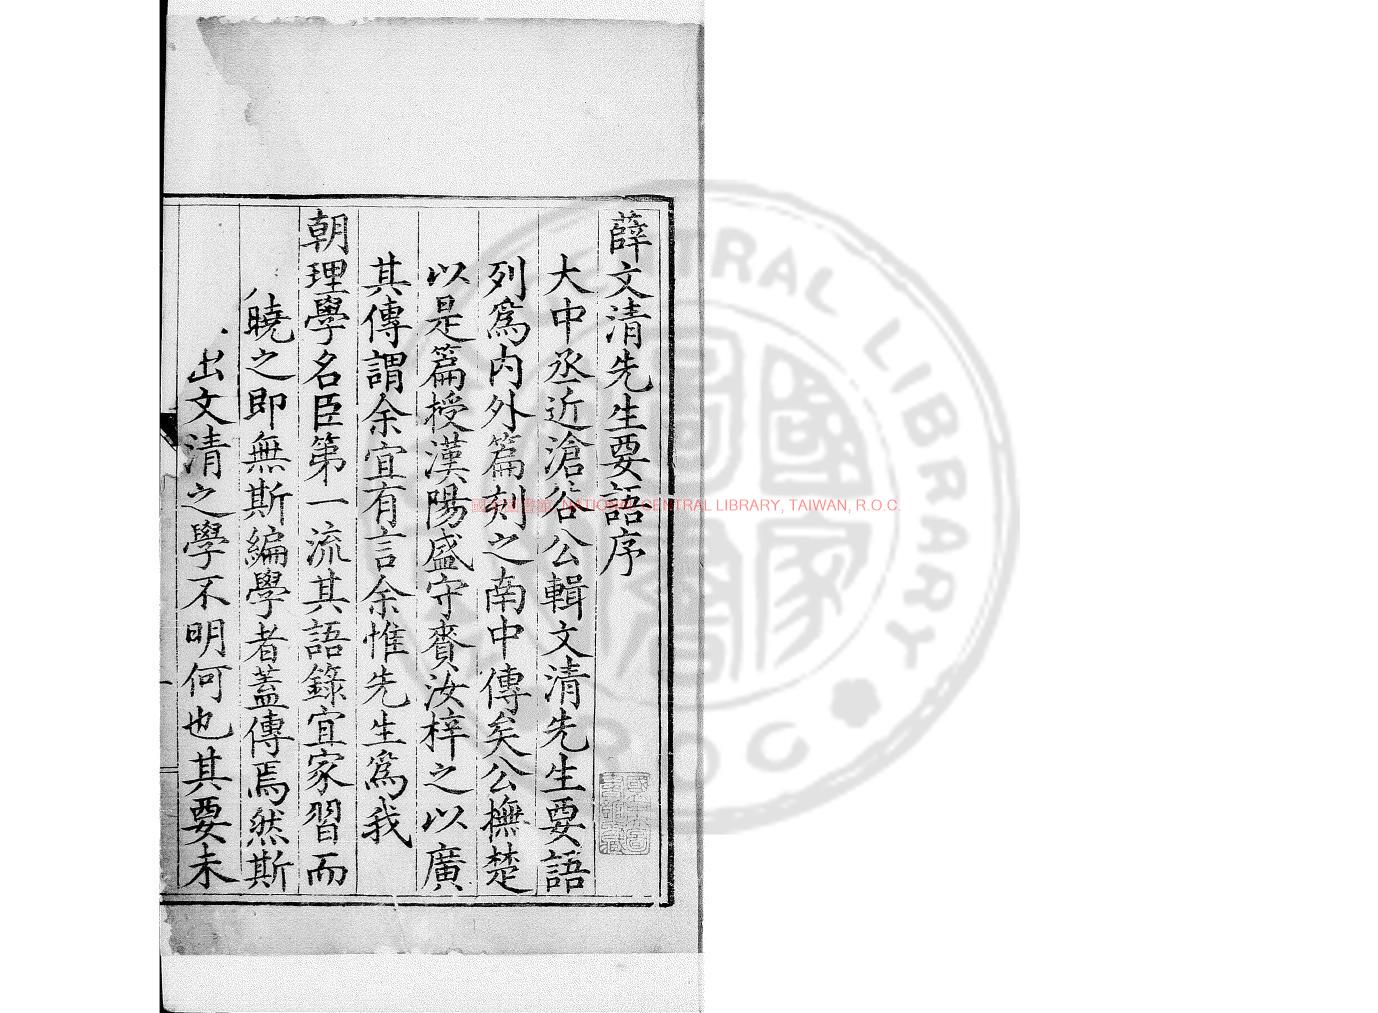 薛文清先生要語序
大中丞近滄谷公輯文清先生要語
列爲内外篇刻之南中傳矣公撫楚
以是篇授漢陽盛守賫汝梓之以廣
其傳謂余宜有言余惟先生爲我
朝理學名臣第一流其語錄宜家習而
曉之即無斯編學者蓋傳焉然斯
出文清之學不明何也其要未
NATIONAL CENTRAL LIBRARY, TAIWAN, R.O.C.
CENTRAL LIBRARY
R.O.C